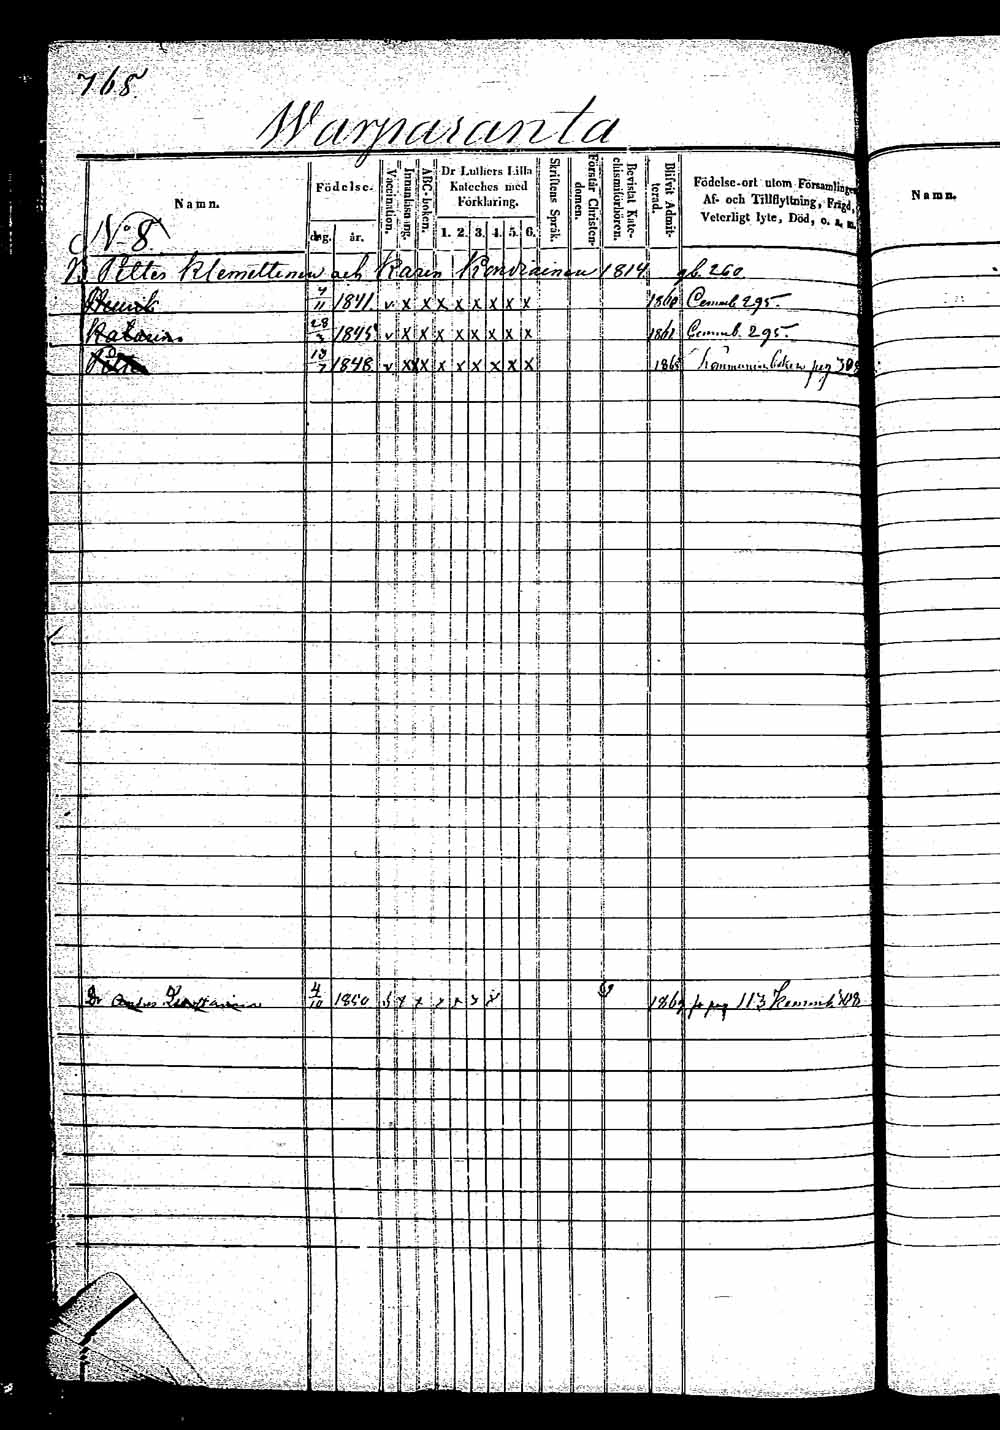 768.
Warparanta
Namn.
Födelse-
dag. år.
Vaccination.
Innanläsning.
ABC-boken.
Dr Luthers Lilla Kateches med Förklaring.
1. 2. 3. 4. 5. 6.
Skriftens Språk.
Förstår Christendomen.
Bevistat Katechismiförhören.
Blifvit Admitterad.
Födelse-ort utom Församlingen,
Af- och Tillflyttning, Frejd,
Veterligt lyte, Död, o. s. m.
Namn.
No 8
Petter Klemettinen och Karin 1814 gb. 260
Henrik 7/11 1841. v x x x x x x x x x 1860 Commb 295.
Katarina 28 1845 v x x x x x x x x x 1861 Commb. 295.
Petter 13/7 1848. v x x x x x x x x x Kommunionboken pag
4/10 1850 x x x x x x pag 113 Kommb